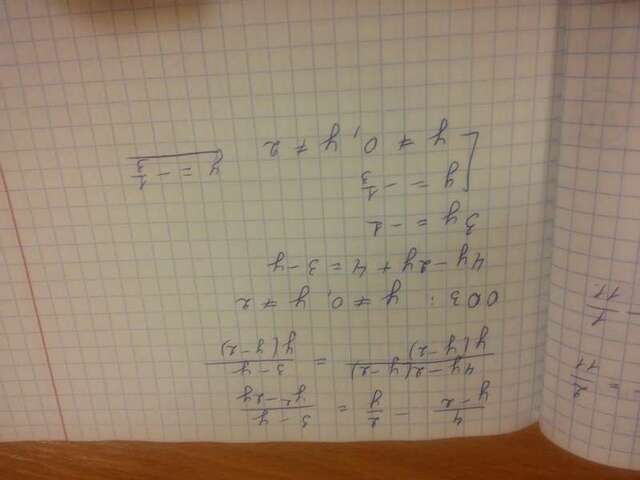 4/(y-2) - 2/y = (3-y)/(y²-2y)
(4y-2(y-2))/(y(y-2)) = (3-y)/(y(y-2))
ОДЗ: y ≠ 0, y ≠ 2
4y-2y+4 = 3-y
3y = -1
[ y = -1/3
y ≠ 0, y ≠ 2 y = -1/3
= 2/11